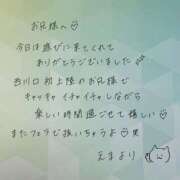 お兄様へ♡
今日は遊びに来てくれて
ありがとうございました
西川口初上陸のお兄様と
キャッキャイチャイチャしながら
楽しい時間過ごせて嬉しい♡
またフェラで抜いちゃうよ♡笑
えまより